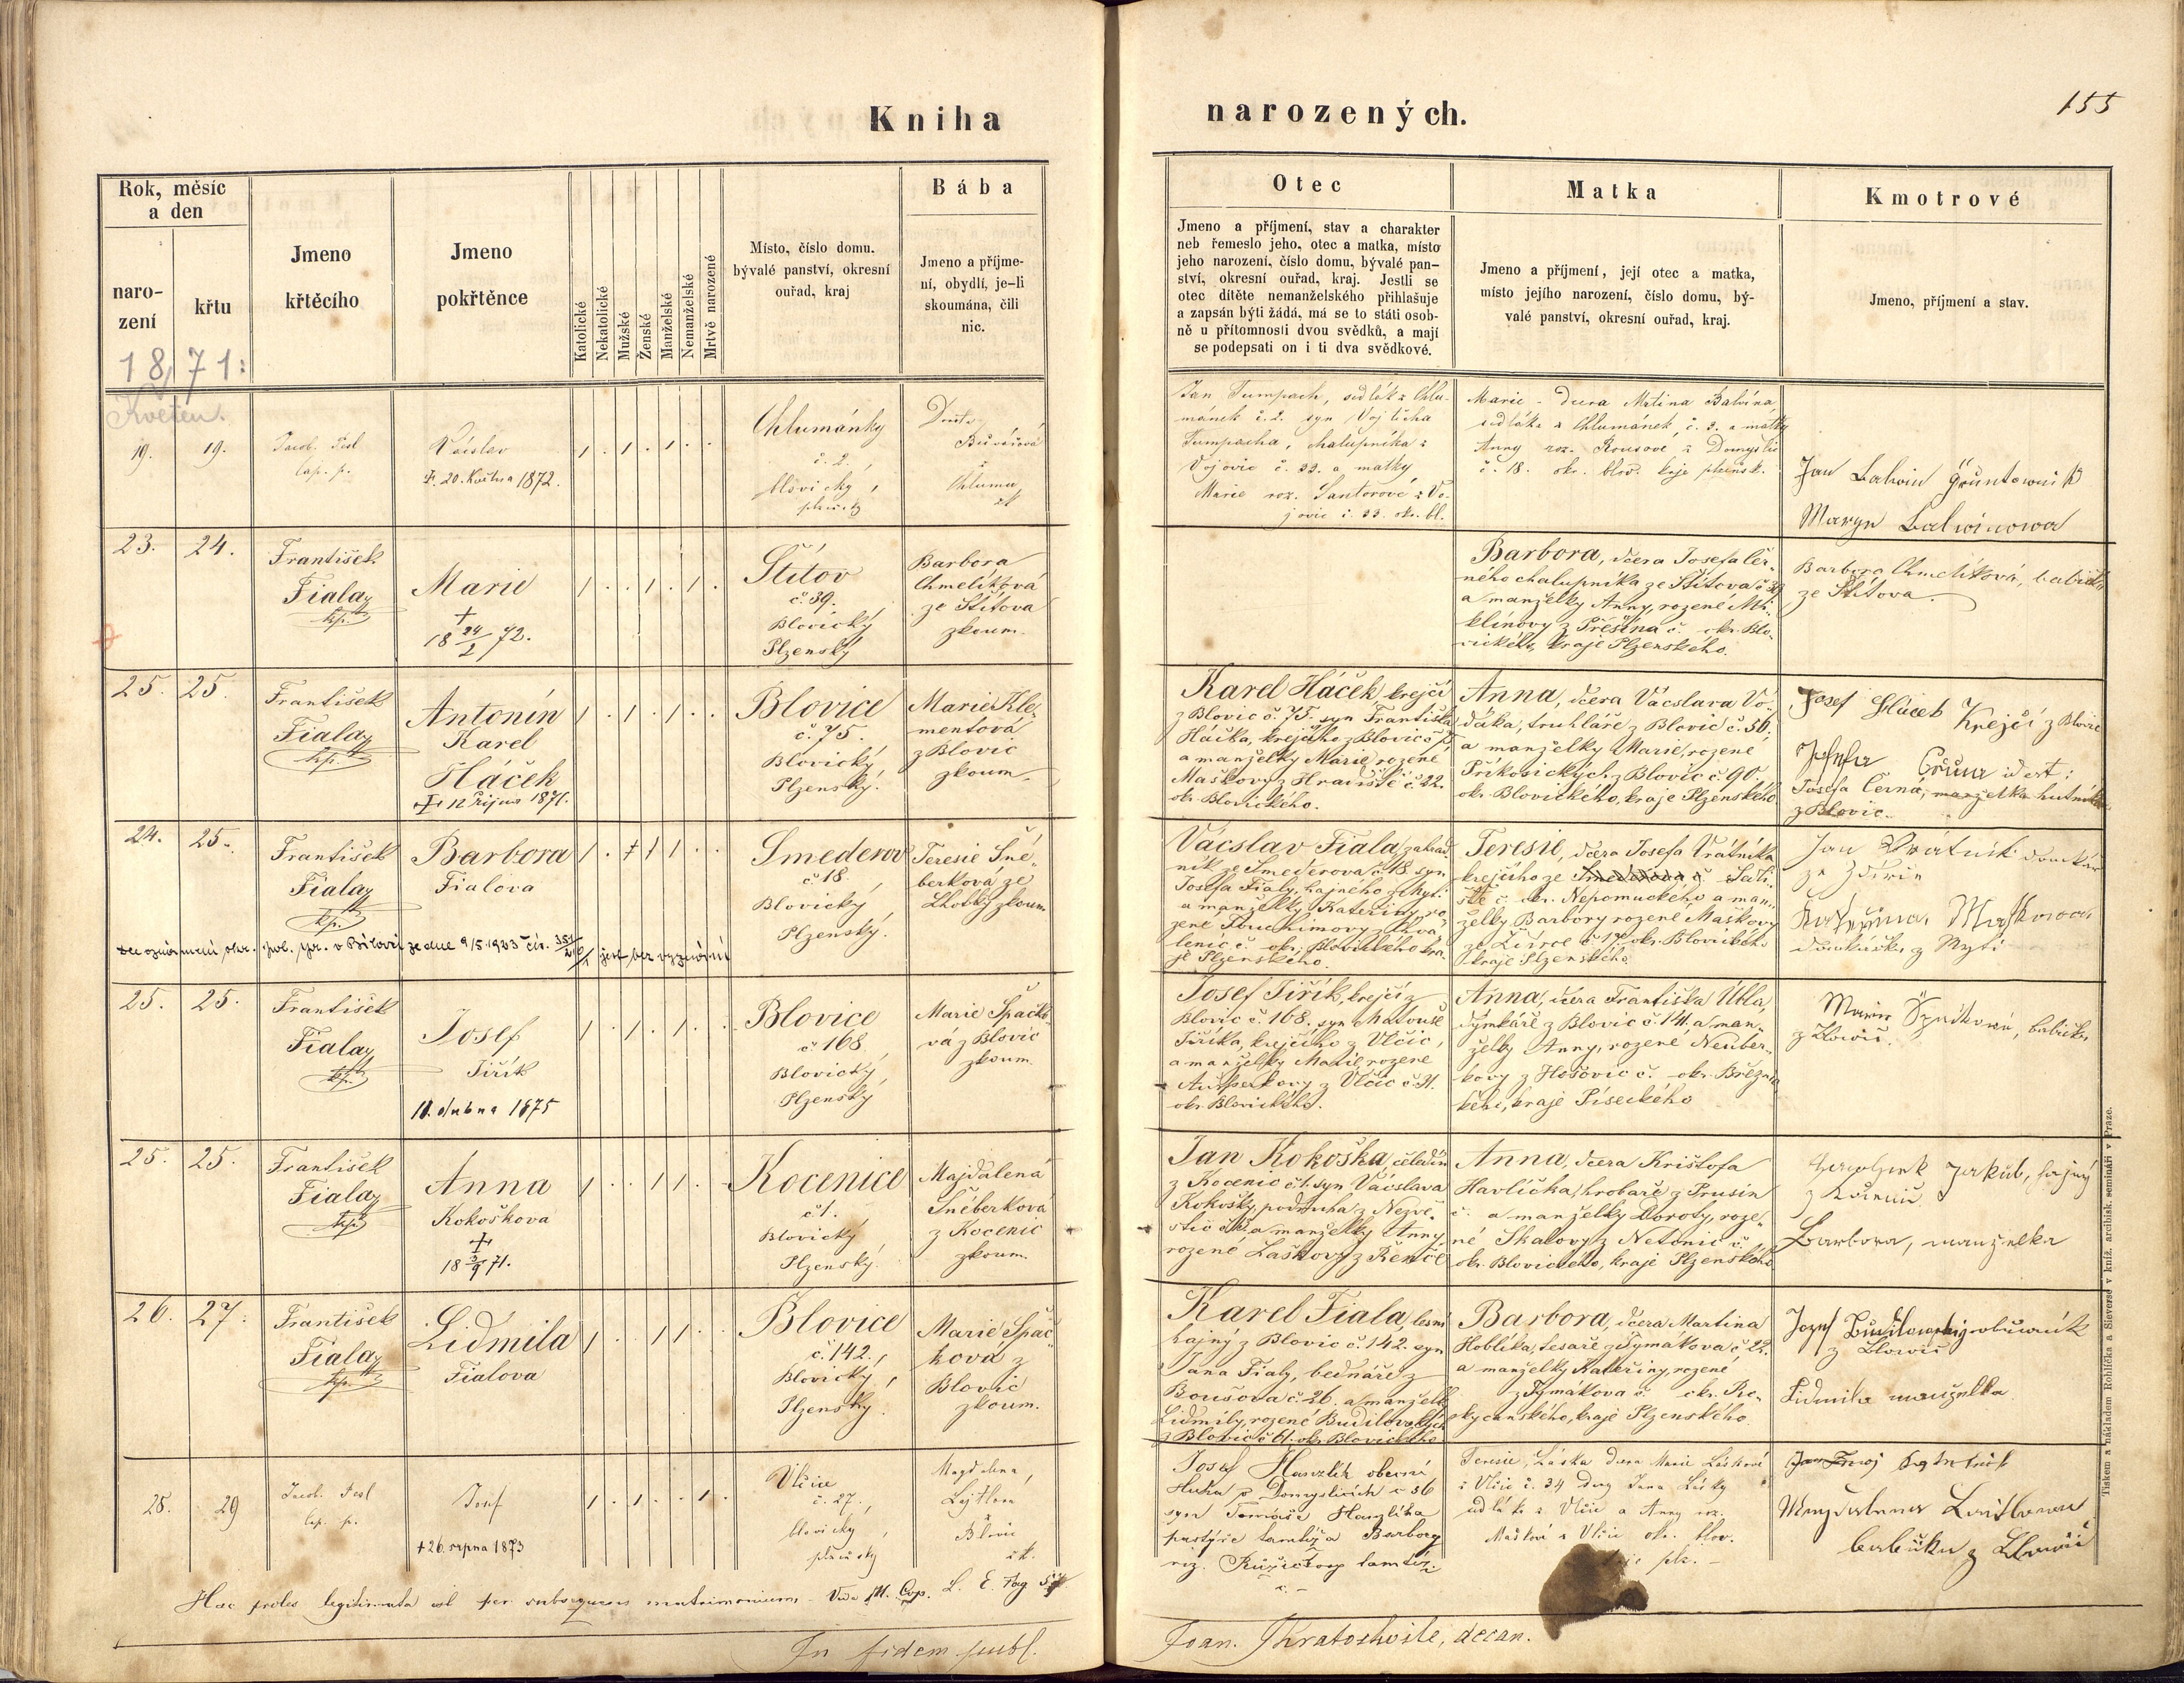 Kniha
narozených.
155
Rok, měsíc
a den
naro-
zení
křtu
Jmeno
křtěcího
Jmeno
pokřtěnce
Katolické
Nekatolické
Mužské
Ženské
Manželské
Nemanželské
Mrtvě narozené
Místo, číslo domu.
bývalé panství, okresní
ouřad, kraj
Bába
Jmeno a příjme-
ní, obydlí, je-li
skoumána, čili
nic.
Otec
Jmeno a příjmení, stav a charakter
neb řemeslo jeho, otec a matka, místo
jeho narození, číslo domu, bývalé pan-
ství, okresní ouřad, kraj. Jestli se
otec dítěte nemanželského přihlašuje
a zapsán býti žádá, má se to státi osob-
ně u přítomnosti dvou svědků, a mají
se podepsati on i ti dva svědkové.
Matka
Jmeno a příjmení, její otec a matka,
místo jejího narození, číslo domu, bý-
valé panství, okresní ouřad, kraj.
Kmotrové
Jmeno, příjmení a stav.
1871:
Květen.
19.
19.
Jacob.
cap. p.
Václav
†. 20. Května 1872.
Chlumánky
č. 2.,
blovický,
plzeňský
Chlumu
Jan Tumpach, sedlák z Chlu-
mánek č. 2. syn Vojtěcha
Tumpacha, chalupníka z
Vojovic č. 33. a matky
Marie roz. Santorové z Vo-
jovic č. 33. okr. bl.
Marie - dcera Mrtina Balvína,
sedláka z Chlumánek, č. 3. a matky
Anny roz. Rousové z Domyslic
č. 18. okr. blov. kraje plzeňsk.
Jan Balwin
Maryn Balwinowa
23.
24.
František
Fiala
kp.
Marie
†
18 24/2 72.
Štítov
č. 39.
Blovický
Plzenský
Barbora
Chmelíková
ze Štítova
zkoum.
Barbora, dcera Josefa Čer-
ného chalupníka ze Štítova č. 39
a manželky Anny, rozené Mi-
klínovy z Přešína č. okr. Blo-
vického, kraje Plzenského.
Barbora Chmelíková, babička
ze Štítova.
25.
25.
František
Fiala
kp.
Antonín
Karel
Háček
† 12 Října 1871.
Blovice
č. 75.
Blovický,
Plzenský.
Marie Kle-
mentová
z Blovic
zkoum.
Karel Háček, krejčí
z Blovic č. 75. syn Františka
Háčka, krejčího z Blovic č. 75,
a manželky Marie, rozené
Maškovy z Hradiště č. 22.
okr. Blovického.
Anna, dcera Vácslava Vo-
dáka, truhláře z Blovic č. 56.,
a manželky Marie, rozené
Příkosických z Blovic č. 90.
okr. Blovického, kraje Plzenského
Josef Háček Krejčí z Blovic
Josefa Černá, manželka hutníka
z Blovic.
24.
25.
František
Fiala
kp.
Barbora
Fialova
Smederov
č. 18.
Blovický,
Plzenský.
Teresie Šně-
berková ze
Lhotky zkoum.
Vácslav Fiala, zahrad-
ník ze Smederova č. 18. syn
Josefa Fialy, hajného z Mytí
a manželky Kateřiny, ro-
zené
lenic č. okr. Blovického kra-
je Plzenského.
Teresie, dcera Josefa Vrátníka
krejčího ze
ště č. okr. Nepomuckého a man-
želky Barbory rozené Maškovy
ze Ždírce č. 19. okr. Blovického
kraje Plzenského
Jan Vrátník
ze Ždírce
Kateřina Maškowa
z Mytí
25.
25.
František
Fiala
kp.
Josef
Jiřík
11. dubna 1875
Blovice
č. 168
Blovický,
Plzenský
Marie Špačko-
vá z Blovic
zkoum.
Josef Jiřík, krejčí z
Blovic č. 168. syn Matouše
Jiříka, krejčího z Vlčic,
a manželky Marie, rozené
z Vlčic č. 31.
okr. Blovického.
Anna, dcera Františka Úbla,
dýmkáře z Blovic č. 141. a man-
želky Anny, rozené Neuber-
kovy z Hošovic č. okr. Březni-
ckého, kraje Píseckého
Marie Špačkowá, babička
z Blowic.
25.
25.
František
Fiala
kp.
Anna
Kokoškova
†
18 3/9 71.
Kocenice
č. 1.
Blovický,
Plzenský.
Majdalena
Šněberková
z Kocenic
zkoum.
Jan Kokoška, čeledín
z Kocenic č. 1. syn Vácslava
Kokošky, podruha z Nezve-
stic a manželky Anny,
rozené Laškovy z Řenče
Anna, dcera Krištofa
Havlíčka, hrobaře z Prusin
č. a manželky Doroty, roze-
né Skalovy z Netonic č.
okr. Blovického, kraje Plzenského
Jakub, hajný
Barbora, manželka
26.
27.
František
Fiala
kp.
Lidmila
Fialova
Blovice
č. 142.,
Blovický,
Plzenský.
Marie Špač-
ková z
Blovic
zkoum.
Karel Fiala, lesní
hajný z Blovic č. 142. syn
Jana Fialy, bednáře z
Boušova č. 26. a manželky
Lidmily, rozené Budilovských
z Blovic č. 61. okr. Blovického
Barbora, dcera Martina
Hoblíka, tesaře z Tymákova č. 22.
a manželky Kateřiny, rozené
z Tymákova č. okr. Ro-
kycanského, kraje Plzenského.
Jozef Budilowský
z Blowic
Lidmila manželka
28.
29
Jacob.
cap. p.
Josef
† 26. srpna 1873
Vlčice
č. 27.,
blovický,
plzeňský
Magdalena,
Blovic
zk.
Josef Hanzlík obecní
sluha z Domyslic č. 36
syn Tomáše Hanzlíka
pastýře tamtéž a Barbory
roz. Růžičkovy tamtéž
Teresie Láska dcera Marie Láskové
z Vlčic č. 34 dcery Jana Lásky
sedláka z Vlčic a Anny roz.
Maškové z Vlčic okr. blov.
plz.
Magdalena
babička z Blowic
Haec proles legitimata est per subsequens matrimonium - Vide M. Cop. L. E. Pag
In fidem publ.
Joan. Kratochvile, decan.
Tiskem a nákladem Rohlíčka a Sieverse v kníž. arcibisk. semináři v Praze.